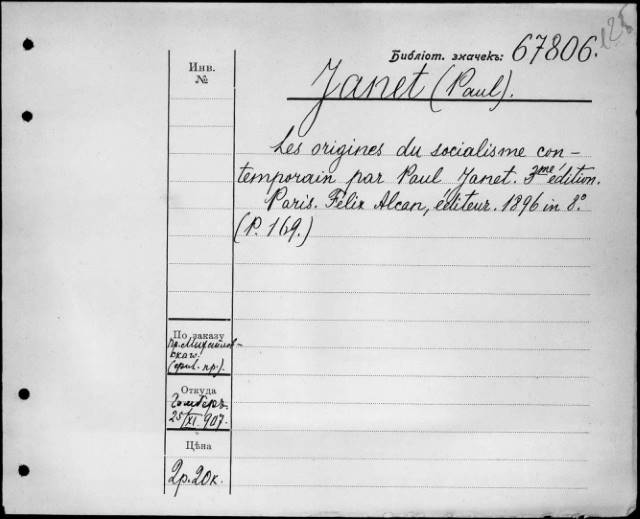 125
Библіот. значекъ: 67806.
Инв.
№
Janet (Paul).
Les origines du socialisme con-
temporain par Paul Janet. 3me édition.
Paris. Félix Alcan, éditeur. 1896 in 8.°
(P. 169.)
По заказу
пр. Михайлов-
скаго
Откуда
25/XI 907.
Цѣна
2р. 20к.